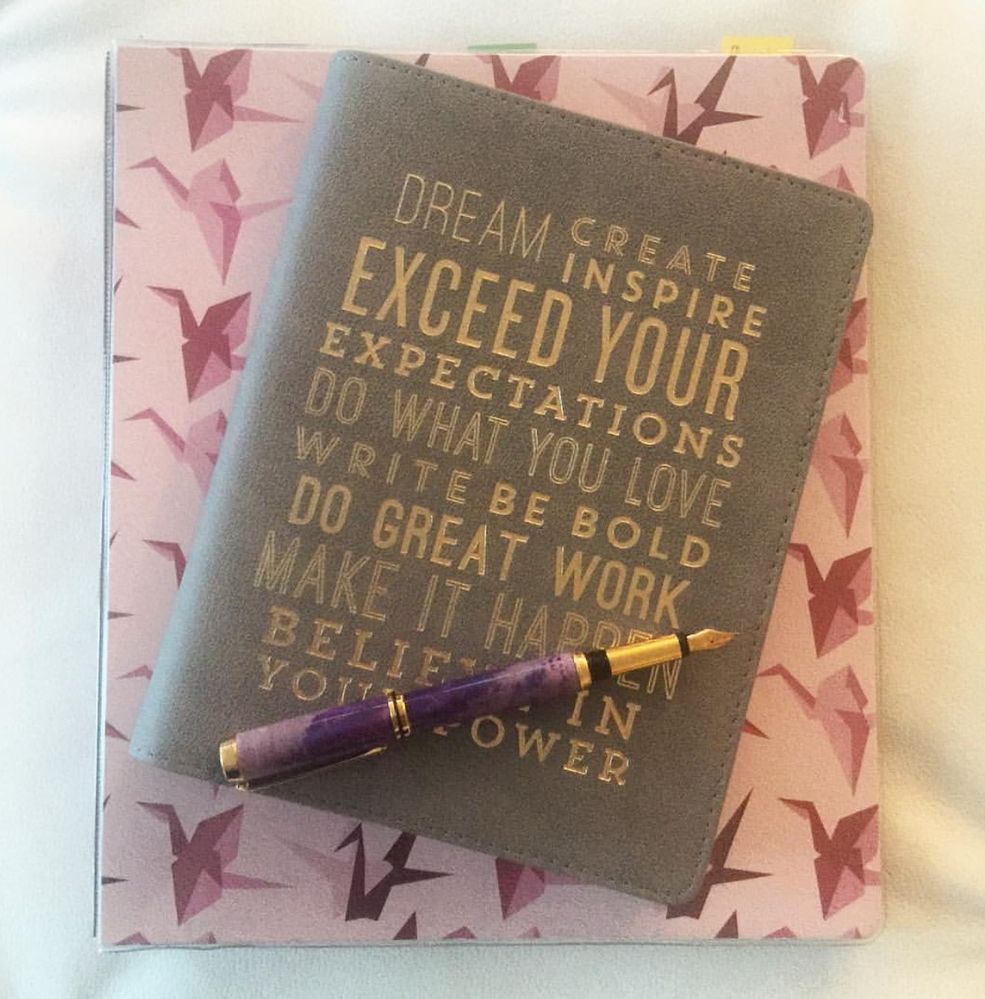 DREAM CREATE
INSPIRE
EXCEED YOUR
EXPECTATIONS
DO WHAT YOU LOVE
WRITE BE BOLD
DO GREAT WORK
MAKE IT HAPPEN
BELIEVE IN
YOUR POWER